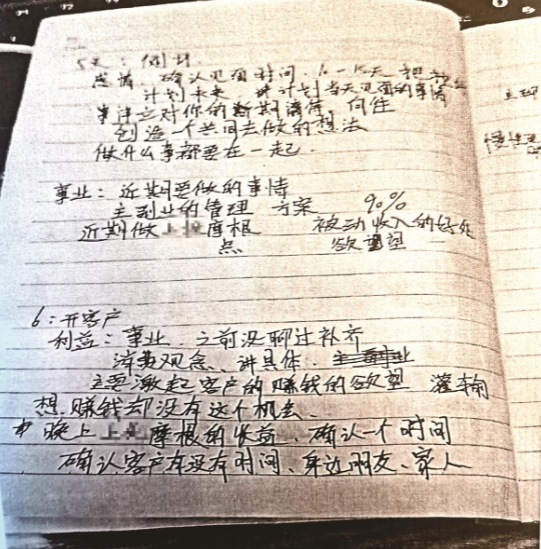 5天：侧封
感情．确认见面时间．6—15天 把
计划未来．并计划当天见面的事情
事注之对你的 期 ．向往
创造一个共同去做的想法
做什么事都要在一起．
事业：近期要做的事情
主副业的管理 方案 90%
近期做上 摩根 被动收入的好处
点 欲望
6：开客户
利益：事业．之前没聊过补齐
消费观念、讲具体．
主要激起客户的赚钱的欲望 灌输
想．赚钱却没有这个机会、
晚上上 摩根的收益．确认一个时间
确认客户有没有时间、身边朋友、家人